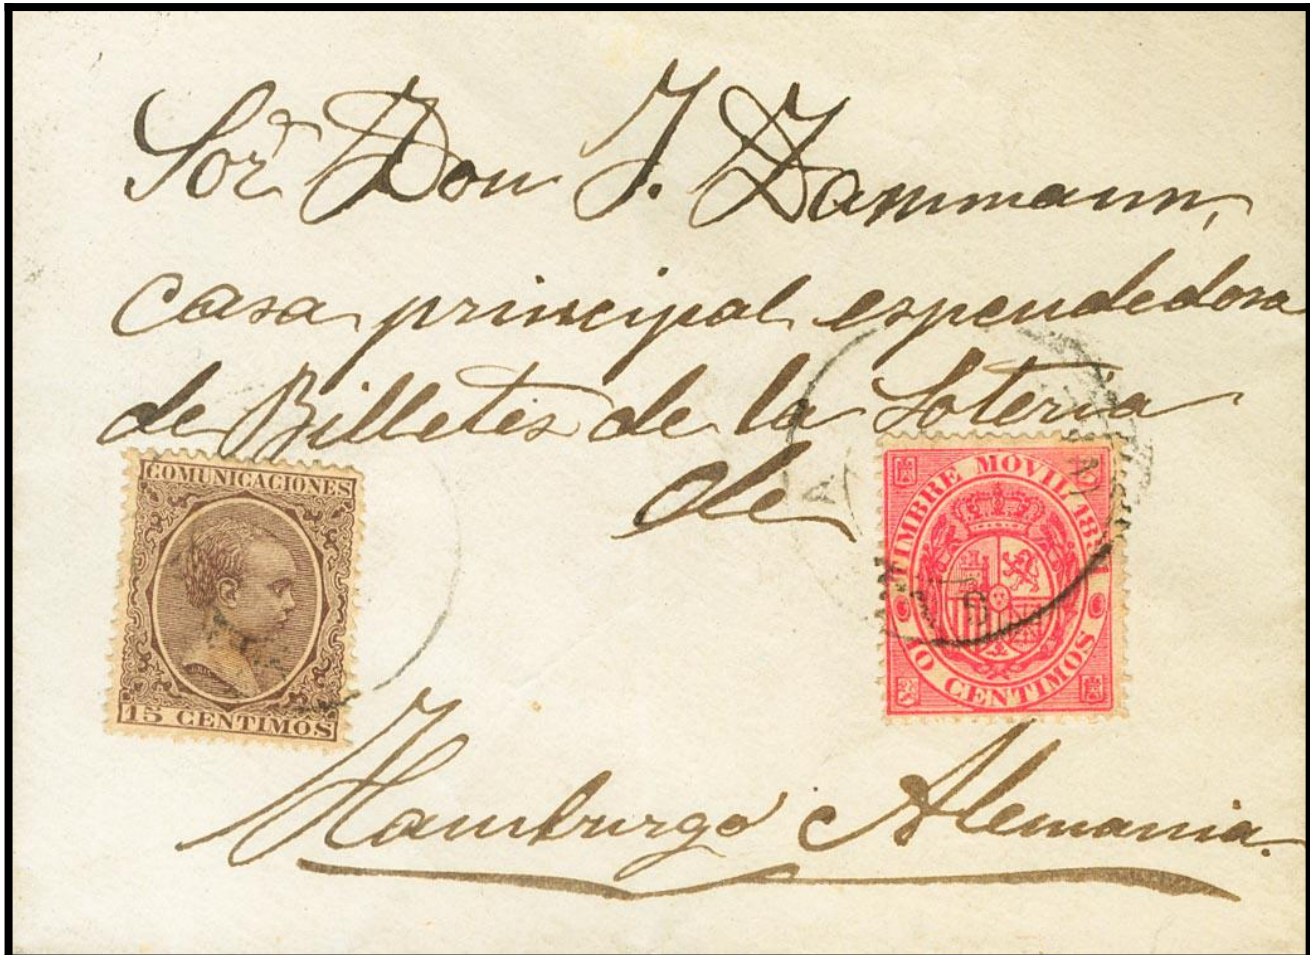 Sor Don J. Dammann,
casa principal espendedora
de Billetes de la Loteria
de
COMUNICACIONES
15 CENTIMOS
TIMBRE MÓVIL
10 CENTIMOS
Hamburgo Alemania.